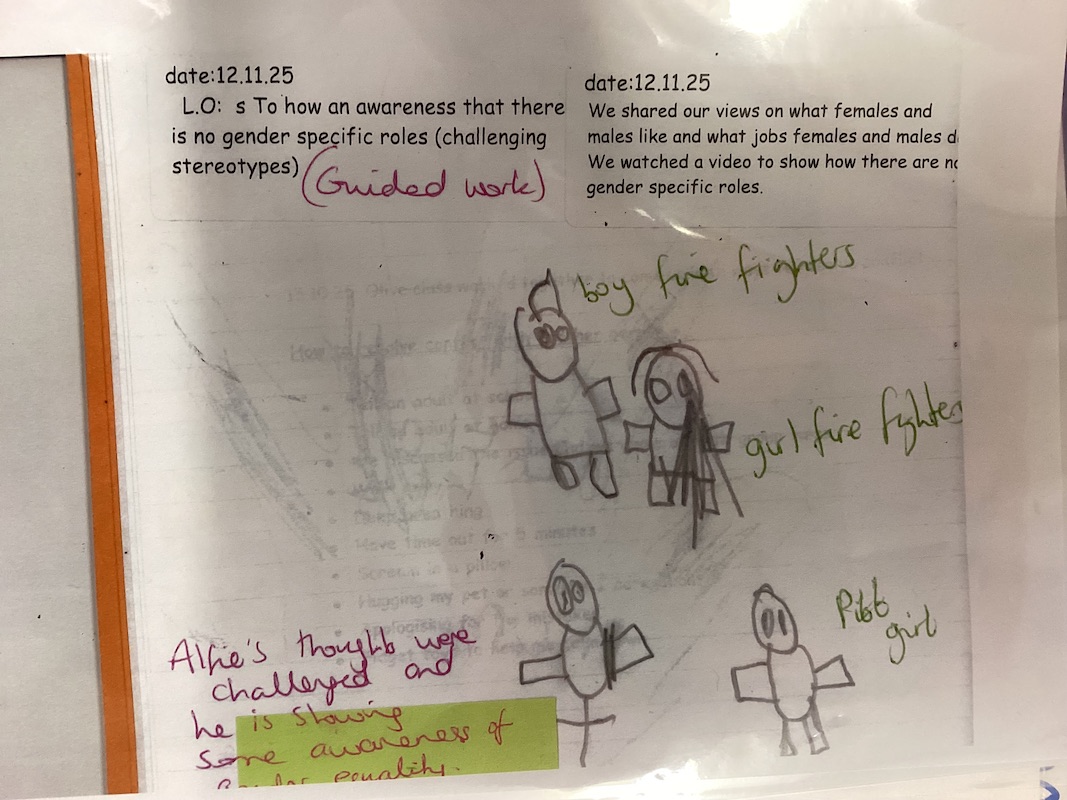 date:12.11.25
L.O: s To how an awareness that there
is no gender specific roles (challenging
stereotypes)
(Guided work)
date:12.11.25
We shared our views on what females and
males like and what jobs females and males d
We watched a video to show how there are no
gender specific roles.
boy fire fighters
girl fire fighters
Pilot
girl
Alfie's thoughts were
challenged and
he is showing
some awareness of
gender equality.
Have time out for 5 minutes
Scream in a pillow
Hugging my pet or